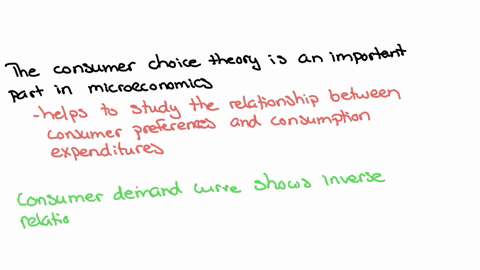 The consumer choice theory is an important
part in microeconomics
-helps to study the relationship between
consumer preferences and consumption
expenditures
Consumer demand curve shows inverse
relatio